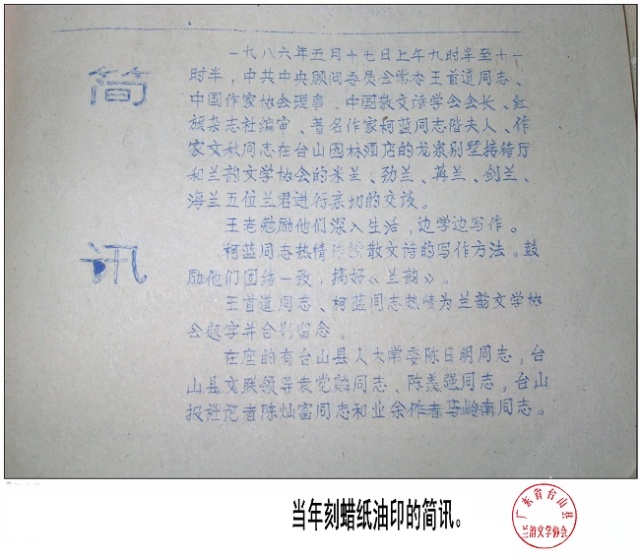 简讯
一九八六年五月十七日上午九时半至十一
时半，中共中央顾问委员会常委王首道同志、
中国作家协会理事、中国散文诗学会会长、红
旗杂志社编审、著名作家柯蓝同志偕夫人、作
家文秋同志在台山园林酒店的龙泉别墅接待厅
和兰韵文学协会的米兰、劲兰、苒兰、剑兰、
海兰五位兰君进行亲切的交谈。
王老勉励他们深入生活，边学边写作。
柯蓝同志热情 散文诗的写作方法。鼓
励他们团结一致，搞好《兰韵》。
王首道同志、柯蓝同志热情为兰韵文学协
会题字并合影留念。
在座的有台山县人大常委陈日明同志，台
山县文联领导 党 同志、陈羡强同志，台山
报社记者陈灿富同志和业余作者马岭南同志。
当年刻蜡纸油印的简讯。
广东省台山县
兰韵文学协会